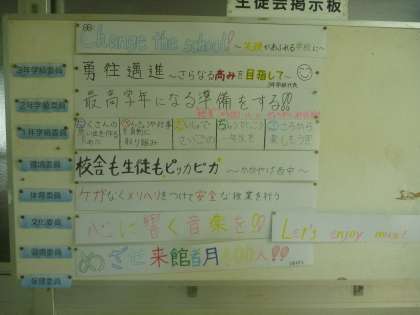 生徒会掲示板
Change the school!
～笑顔があふれる学校に～
3年学級委員
勇往邁進 ～さらなる高みを目指して～
2年学級委員
最高学年になる準備をする!!
1年学級委員
環境委員
校舎も生徒もピッカピカ
体育委員
ケガなくメリハリをつけて安全な授業を行う
文化委員
心に響く音楽を!!
Let's enjoy music!
図書委員
めざせ来館者月100人!!
保健委員